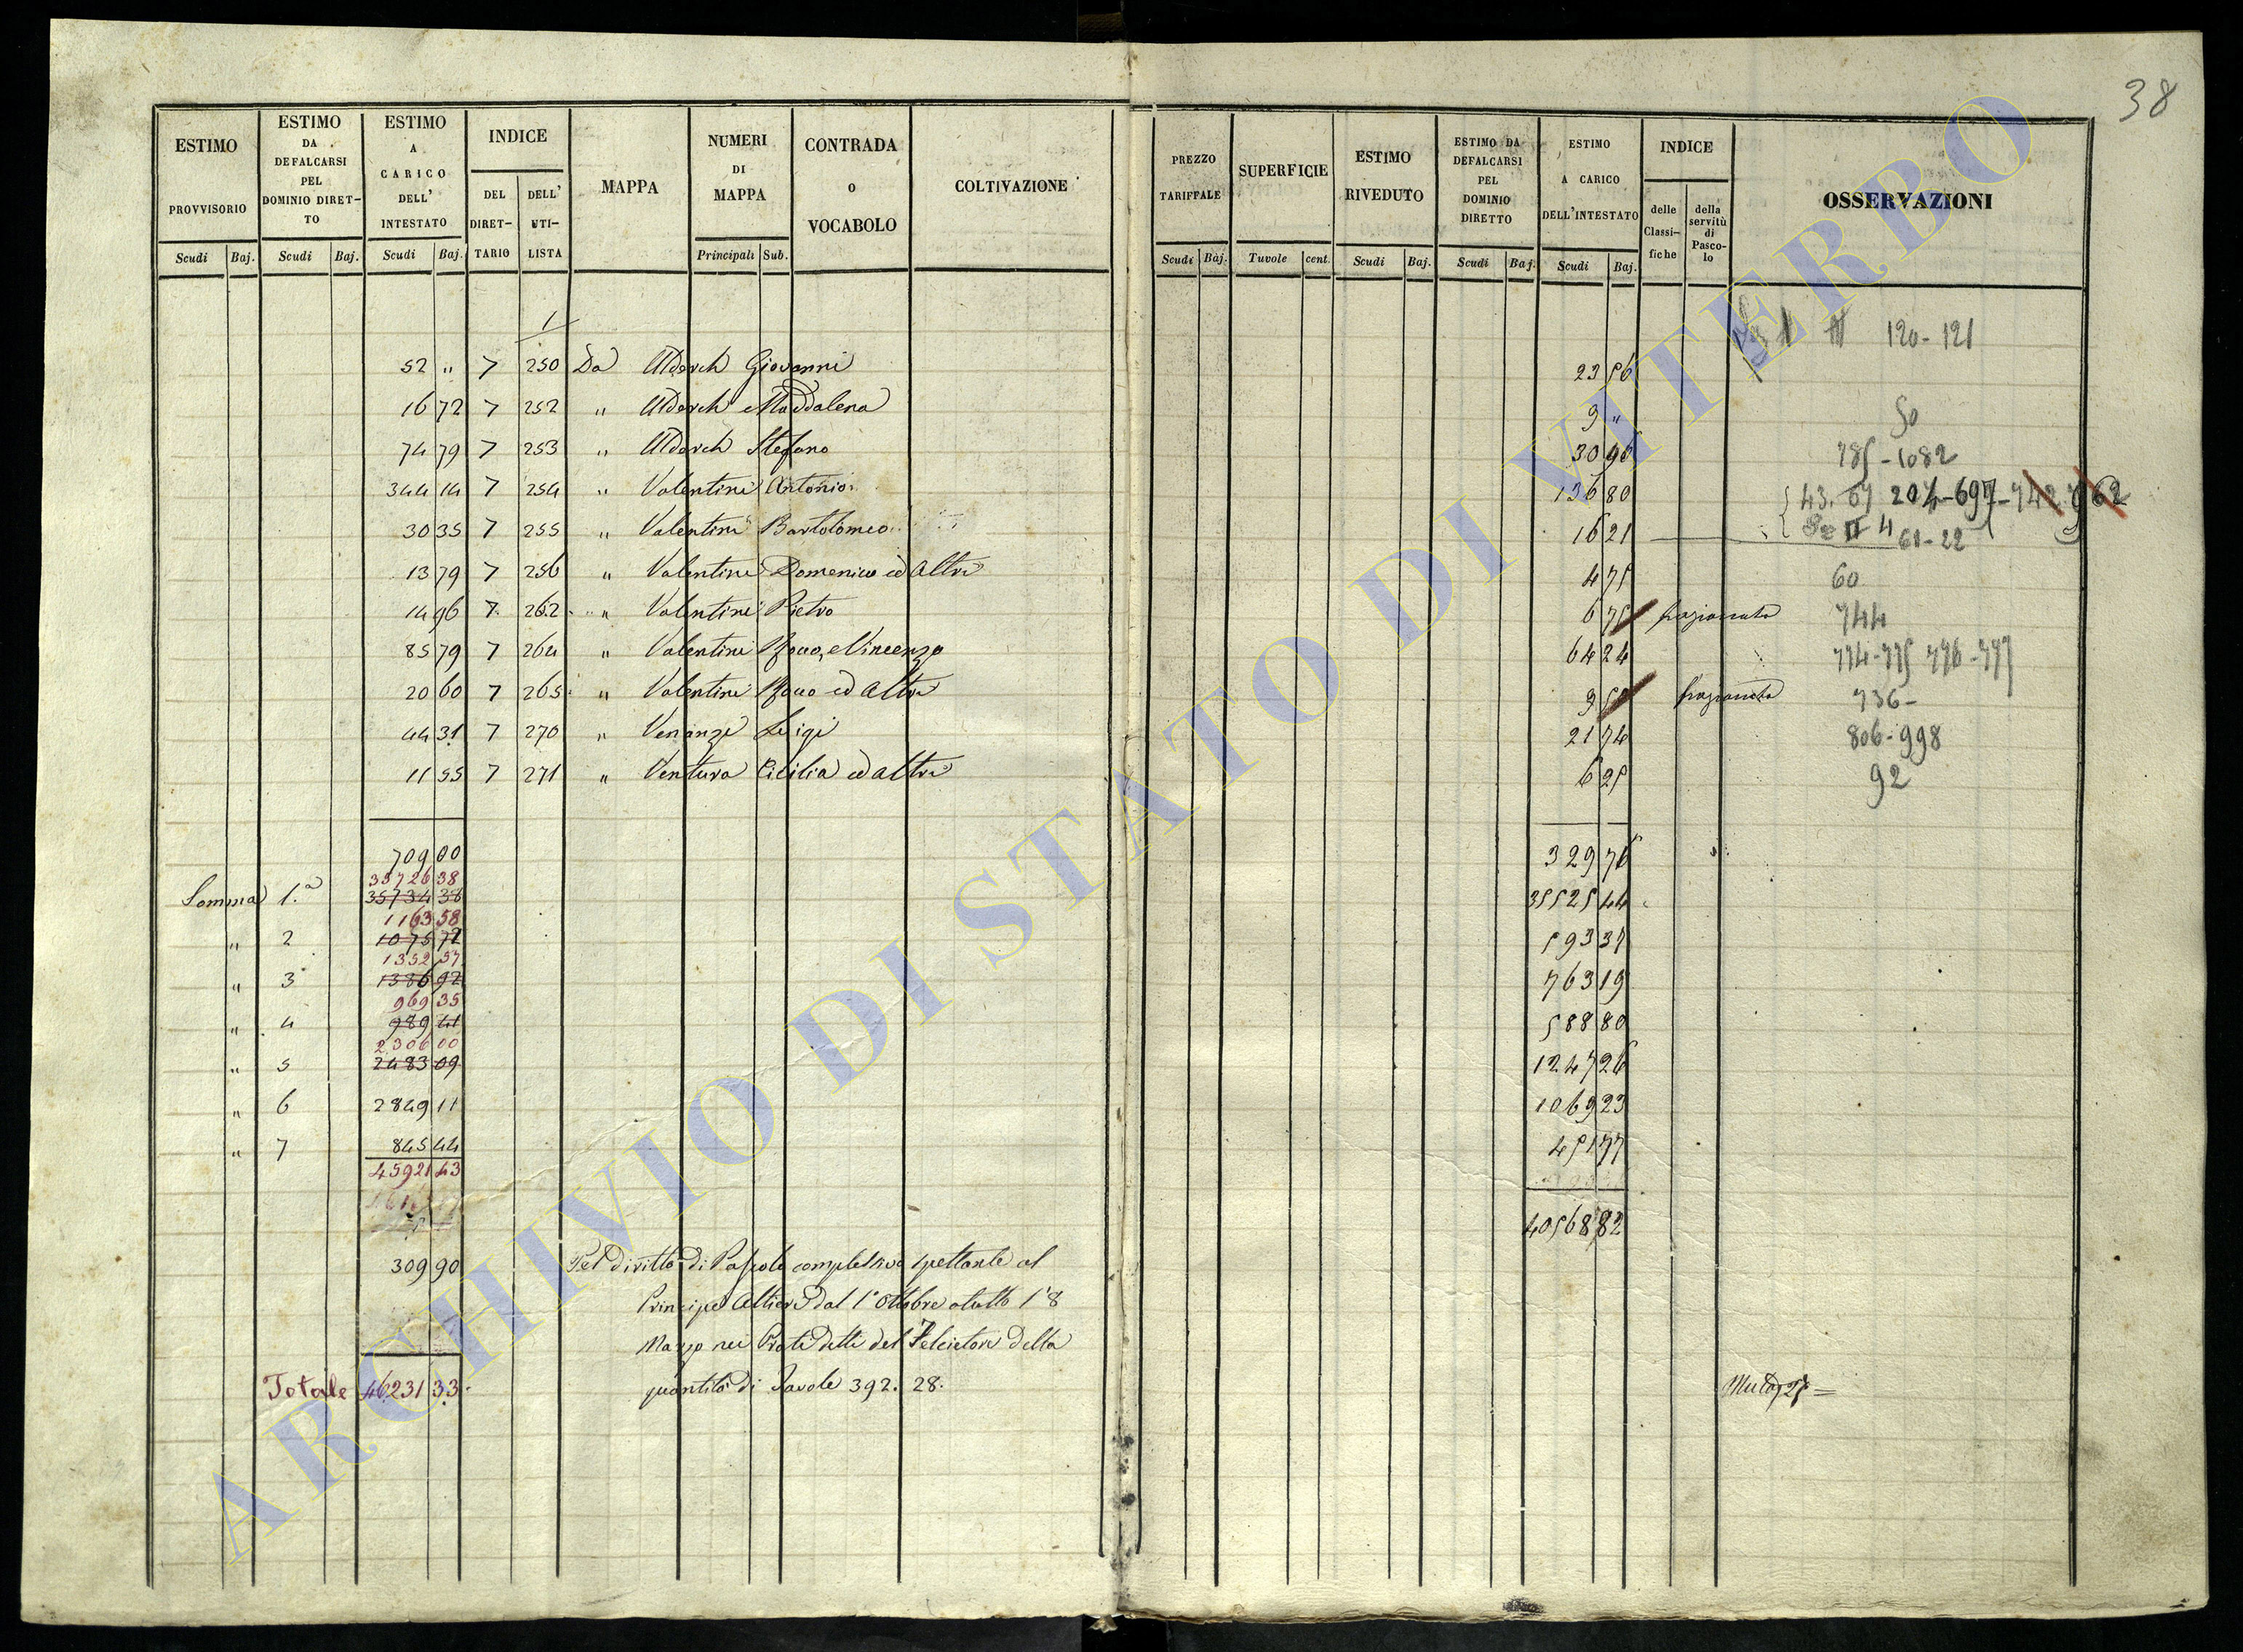 38
ESTIMO PROVVISORIO
ESTIMO DA DEFALCARSI PEL DOMINIO DIRET-TO
ESTIMO A CARICO DELL' INTESTATO
INDICE
DEL DIRET-TARIO
DELL' UTI-LISTA
MAPPA
NUMERI DI MAPPA
CONTRADA O VOCABOLO
COLTIVAZIONE
PREZZO TARIFFALE
SUPERFICIE
ESTIMO RIVEDUTO
ESTIMO DA DEFALCARSI PEL DOMINIO DIRETTO
ESTIMO A CARICO DELL'INTESTATO
INDICE
delle Classi-fiche
della servitù di Pasco-lo
OSSERVAZIONI
Scudi Baj. Scudi Baj. Scudi Baj. Principali Sub. Scudi Baj. Tavole cent. Scudi Baj. Scudi Baj. Scudi Baj.
1
120-121
52 " 7 250 Da Alderch Giovanni 23 56
16 72 7 252 " Alderch Maddalena 9 " 50
74 79 7 253 " Alderch Stefano 30 96 785-1082
344 14 7 254 " Valentini Antonio 136 80 43. 67 204-697-742 762
30 35 7 255 " Valentini Bartolomeo 16 21 61-22
13 79 7 256 " Valentini Domenico ed Altri 4 75 60
14 96 7 262 " Valentini Pietro 6 75 frazionato 744
85 79 7 264 " Valentini Rocco, e Vincenzo 64 24 774-775 776-777
20 60 7 265 " Valentini Rocco ed Altri 9 50 frazionato 736-
44 31 7 270 " Venanzi Luigi 21 74 806-998
11 55 7 271 " Ventura Cicilia ed altri 6 25 92
709 00 329 76
35726 38
Somma 1.a 35734 38 35525 44
1163 58
" 2 1075 72 593 37
1352 57
" 3 1386 92 763 19
969 35
" 4 989 41 588 80
2306 00
" 5 2483 09 1247 26
" 6 2849 11 1069 23
" 7 845 44 451 77
45921 43
40568 82
309 90 Pel diritto di Pascolo complessivo spettante al
Principe Altieri dal 1° Ottobre a tutto 18
Marzo nei Prati detti del Felcietone della
Totale 46231 33. quantità di Tavole 392. 28.
ARCHIVIO DI STATO DI VITERBO